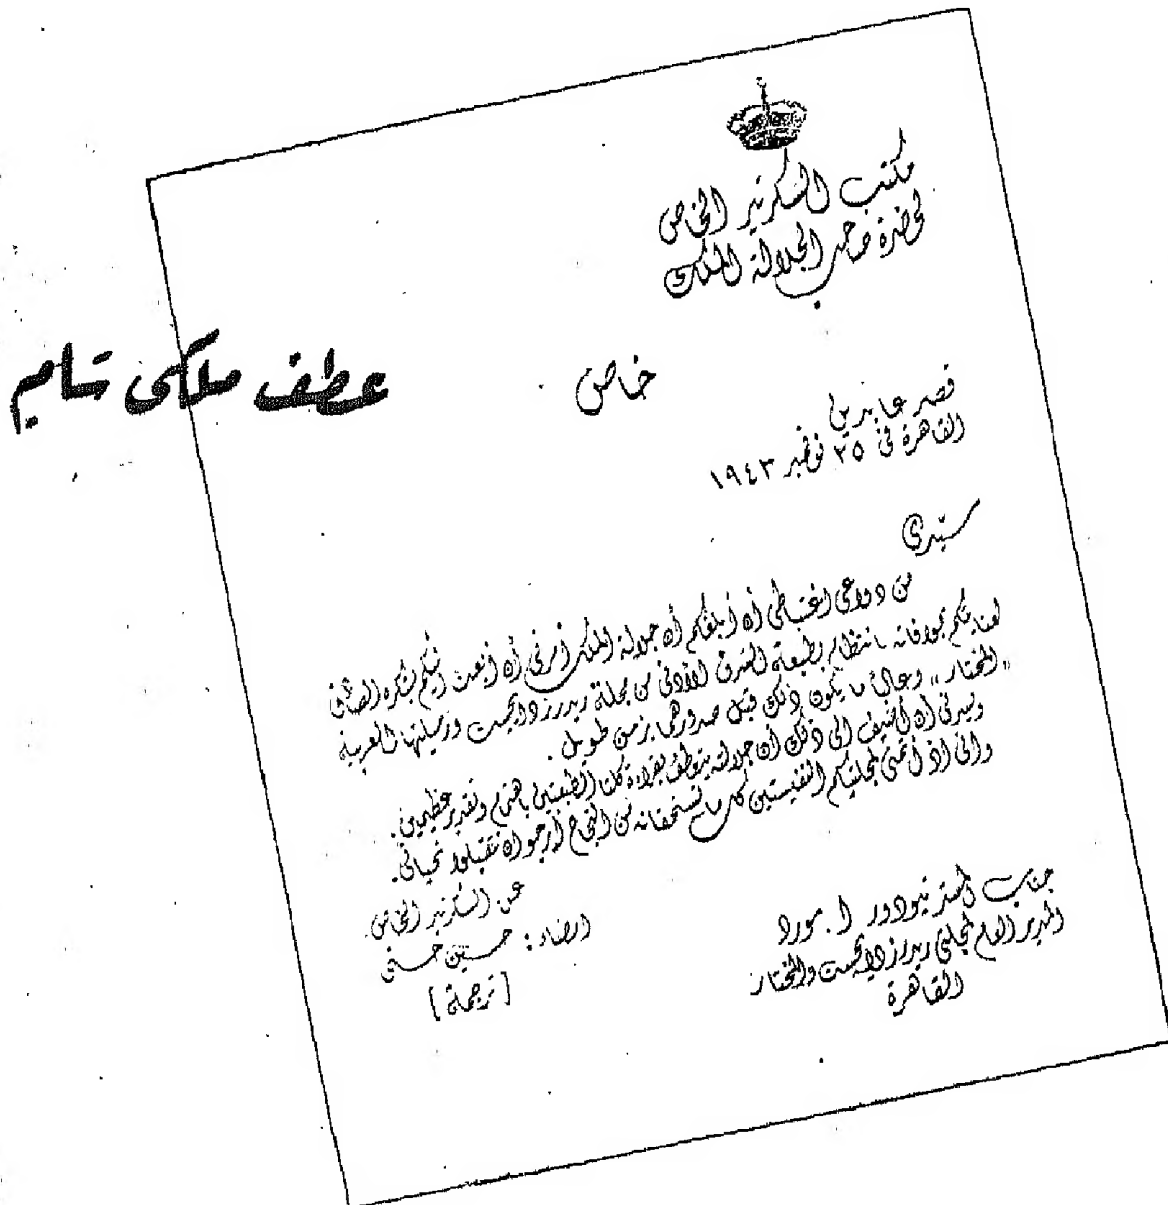 مكتب السكرتير الخاص
لحضرة صاحب الجلالة الملك
عطف ملكى سام
خاص
قصر عابدين
القاهرة فى ٢٥ نوفمبر ١٩٤٣
سيدى
من دواعى اغتباطى أن أبلغكم أن جلالة الملك أمرنى أن أبعث إليكم بشكره الصادق
لعنايتكم بموافاته بانتظام بطبعة الشرق الأدنى من مجلة ريدرز دايجست وزميلتها العربية
"المختار" وغالبا ما يكون ذلك قبل صدورهما بزمن طويل.
ويسرنى أن أضيف الى ذلك أن جلالته يتعطف بقراءة كلتا الطبعتين باهتمام وتقدير عظيمين.
وانى اذ أتمنى لمجلتيكم النفيستين كل ما تستحقانه من النجاح أرجو ان تتقبلوا تحياتى.
عن السكرتير الخاص
امضاء: حسين حسنى
[ترجمة]
جناب المستر تيودور ا. مورد
المدير العام لمجلتى ريدرز دايجست والمختار
القاهرة